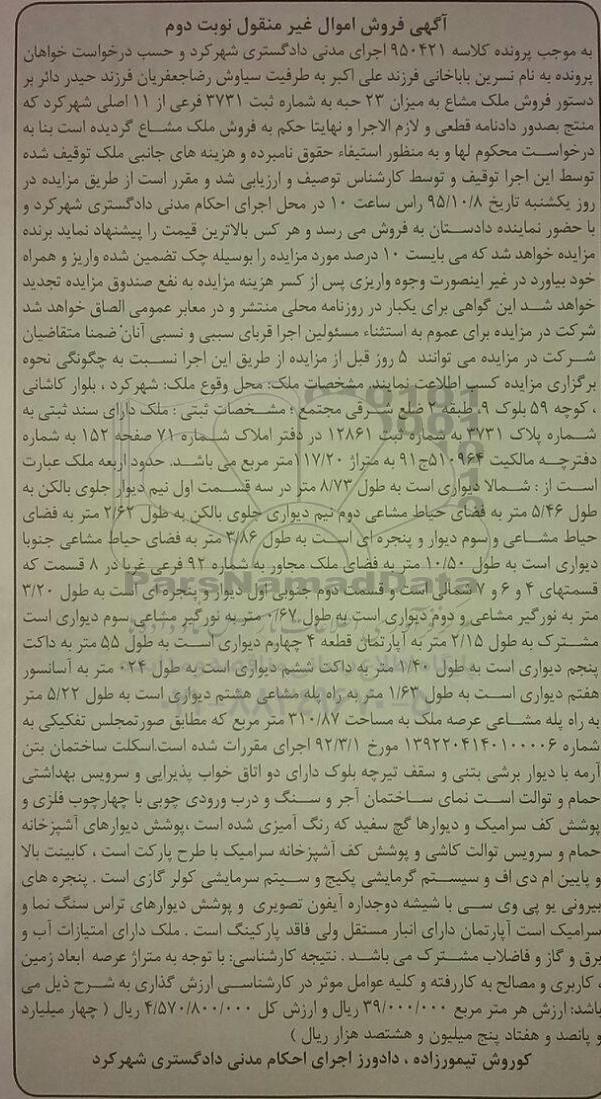 آگهی فروش اموال غیر منقول نوبت دوم
به موجب پرونده کلاسه ۹۵۰۴۲۱ اجرای مدنی دادگستری شهرکرد و حسب درخواست خواهان
پرونده به نام نسرین باباخانی فرزند علی اکبر به طرفیت سیاوش رضاجعفریان فرزند حیدر دائر بر
دستور فروش ملک مشاع به میزان ۲۳ حبه به شماره ثبت ۳۷۳۱ فرعی از ۱۱ اصلی شهرکرد که
منتج بصدور دادنامه قطعی و لازم الاجرا و نهایتا حکم به فروش ملک مشاع گردیده است بنا به
درخواست محکوم لها و به منظور استیفاء حقوق نامبرده و هزینه های جانبی ملک توقیف شده
توسط این اجرا توقیف و توسط کارشناس توصیف و ارزیابی شد و مقرر است از طریق مزایده در
روز یکشنبه تاریخ ۹۵/۱۰/۸ راس ساعت ۱۰ در محل اجرای احکام مدنی دادگستری شهرکرد و
با حضور نماینده دادستان به فروش می رسد و هر کس بالاترین قیمت را پیشنهاد نماید برنده
مزایده خواهد شد که می بایست ۱۰ درصد مورد مزایده را بوسیله چک تضمین شده واریز و همراه
خود بیاورد در غیر اینصورت وجوه واریزی پس از کسر هزینه مزایده به نفع صندوق مزایده تجدید
خواهد شد این گواهی برای یکبار در روزنامه محلی منتشر و در معابر عمومی الصاق خواهد شد
شرکت در مزایده برای عموم به استثناء مسئولین اجرا قربای سببی و نسبی آنان ضمنا متقاضیان
شرکت در مزایده می توانند ۵ روز قبل از مزایده از طریق این اجرا نسبت به چگونگی نحوه
برگزاری مزایده کسب اطلاعت نمایند. مشخصات ملک: محل وقوع ملک: شهرکرد ، بلوار کاشانی
، کوچه ۵۹ بلوک ۹، طبقه ۲ ضلع شرقی مجتمع ؛ مشخصات ثبتی : ملک دارای سند ثبتی به
شماره پلاک ۳۷۳۱ به شماره ثبت ۱۲۸۶۱ در دفتر املاک شماره ۷۱ صفحه ۱۵۲ به شماره
دفترچه مالکیت ۵۱۰۹۶۴ج۹۱ به متراژ ۱۱۷/۲۰متر مربع می باشد. حدود اربعه ملک عبارت
است از : شمالا دیواری است به طول ۸/۷۳ متر در سه قسمت اول نیم دیوار جلوی بالکن به
طول ۵/۴۶ متر به فضای حیاط مشاعی دوم نیم دیواری جلوی بالکن به طول ۲/۶۲ متر به فضای
حیاط مشاعی و سوم دیوار و پنجره ای است به طول ۳/۸۶ متر به فضای حیاط مشاعی جنوبا
دیواری است به طول ۱۰/۵۰ متر به فضای ملک مجاور به شماره ۹۲ فرعی غربا در ۸ قسمت که
قسمتهای ۴ و ۶ و ۷ شمالی است و قسمت دوم جنوبی اول دیوار و پنجره ای است به طول ۳/۲۰
متر به نورگیر مشاعی و دوم دیواری است به طول ۰/۶۷ متر به نورگیر مشاعی سوم دیواری است
مشترک به طول ۲/۱۵ متر به آپارتمان قطعه ۴ چهارم دیواری است به طول ۵۵ متر به داکت
پنجم دیواری است به طول ۱/۴۰ متر به داکت ششم دیواری است به طول ۰۲۴ متر به آسانسور
هفتم دیواری است به طول ۱/۶۳ متر به راه پله مشاعی هشتم دیواری است به طول ۵/۲۲ متر
به راه پله مشاعی عرصه ملک به مساحت ۳۱۰/۸۷ متر مربع که مطابق صورتمجلس تفکیکی به
شماره ۱۳۹۲۲۰۴۱۴۰۱۰۰۰۰۶ مورخ ۹۲/۳/۱ اجرای مقررات شده است.اسکلت ساختمان بتن
آرمه با دیوار برشی بتنی و سقف تیرچه بلوک دارای دو اتاق خواب پذیرایی و سرویس بهداشتی
حمام و توالت است نمای ساختمان آجر و سنگ و درب ورودی چوبی با چهارچوب فلزی و
پوشش کف سرامیک و دیوارها گچ سفید که رنگ آمیزی شده است ،پوشش دیوارهای آشپزخانه
حمام و سرویس توالت کاشی و پوشش کف آشپزخانه سرامیک با طرح پارکت است ، کابینت بالا
و پایین ام دی اف و سیستم گرمایشی پکیج و سیتم سرمایشی کولر گازی است . پنجره های
بیرونی یو پی وی سی با شیشه دوجداره آیفون تصویری و پوشش دیوارهای تراس سنگ نما و
سرامیک است آپارتمان دارای انبار مستقل ولی فاقد پارکینگ است . ملک دارای امتیازات آب و
برق و گاز و فاضلاب مشترک می باشد . نتیجه کارشناسی: با توجه به متراژ عرصه ابعاد زمین
، کاربری و مصالح به کاررفته و کلیه عوامل موثر در کارشناسی ارزش گذاری به شرح ذیل می
باشد: ارزش هر متر مربع ۳۹/۰۰۰/۰۰۰ ریال و ارزش کل ۴/۵۷۰/۸۰۰/۰۰۰ ریال ( چهار میلیارد
و پانصد و هفتاد پنج میلیون و هشتصد هزار ریال )
کوروش تیمورزاده ، دادورز اجرای احکام مدنی دادگستری شهرکرد
ParsNamadData